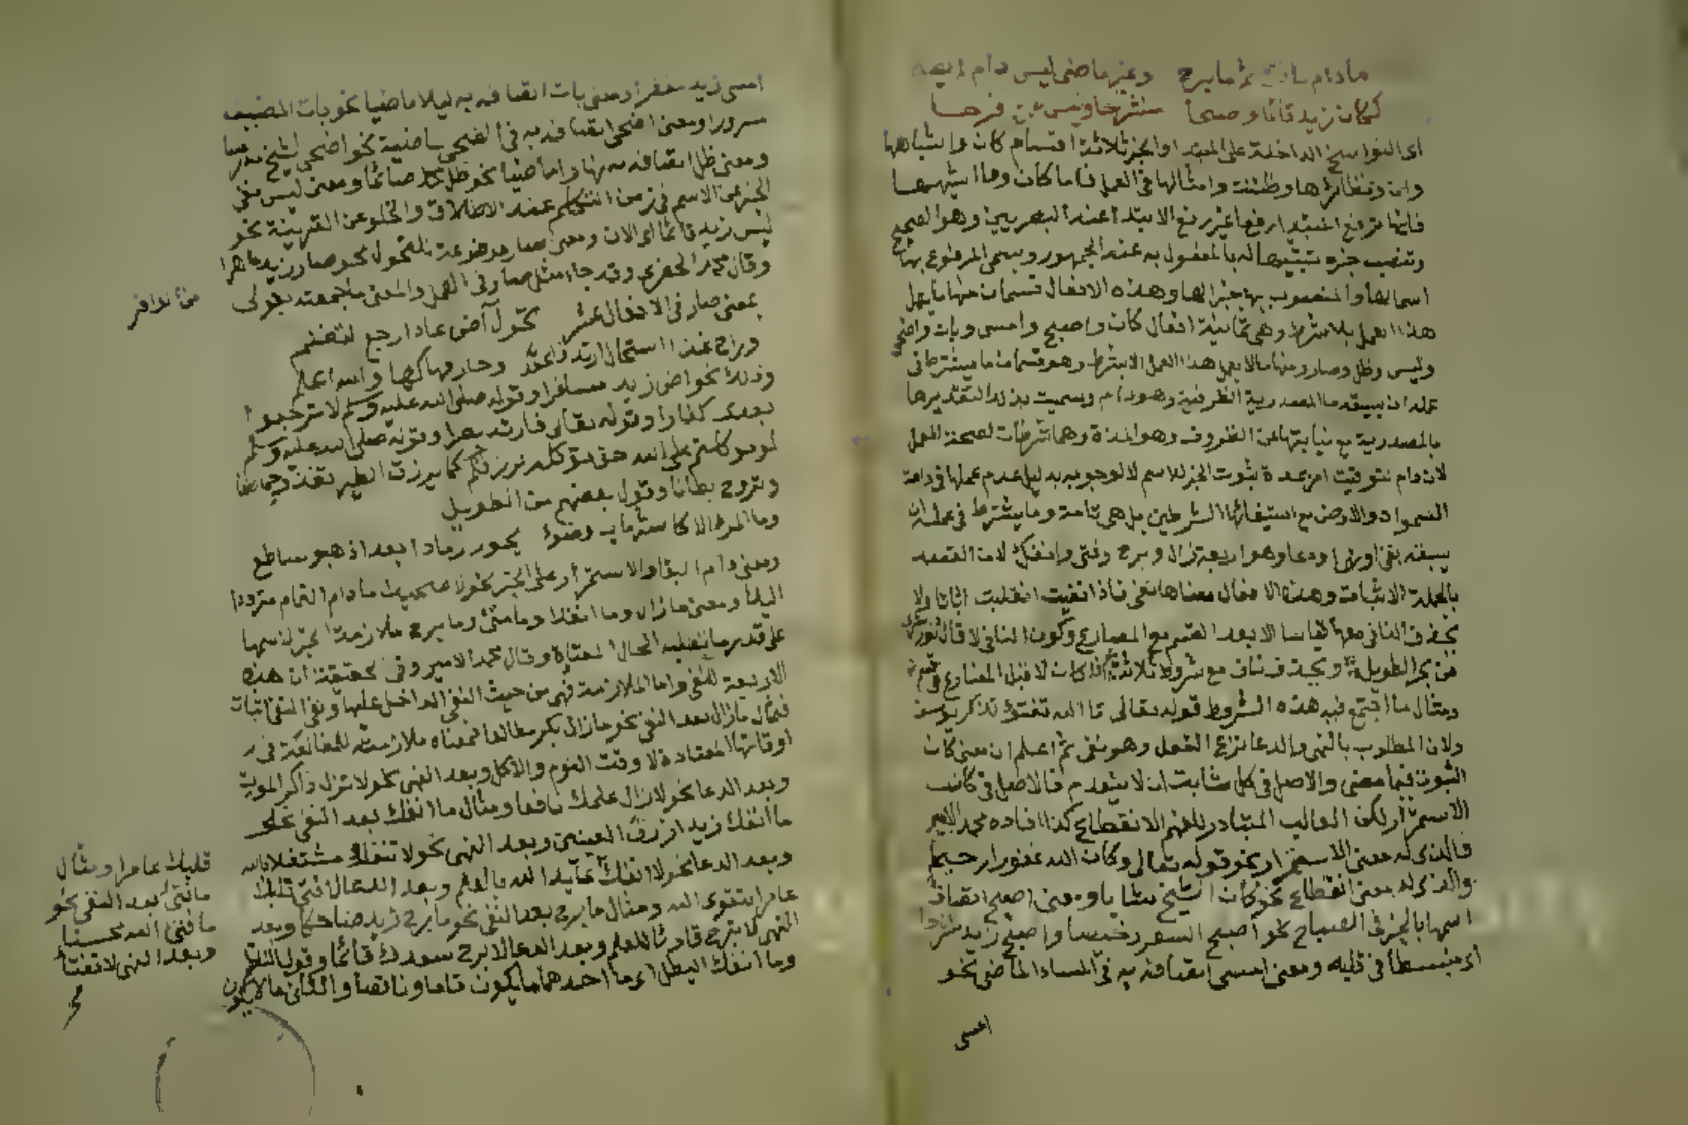 مادام ما انفك ثم ما برح وغير ماضى ليس دام
ككان زيد قائما وصحا
اى النواسخ الداخلة على المبتدا والخبر ثلاثة اقسام كان واشباهها
وان ونظائرها وظننت وامثالها فى العمل فاما كان وما اشبهها
فانها ترفع المبتدا رفعا غير رفع الابتدا عند البصريين وهو الصحيح
وتنصب خبره تشبيها له بالمفعول به عند الجمهور ويسمى المرفوع بها
اسما لها والمنصوب بها خبرا لها وهذه الافعال قسمان منها ما يعمل
هذا العمل بلا شرط وهى ثمانية افعال كان واصبح وامسى وبات واضحى
وليس وظل وصار ومنها ما لا يعمل هذا العمل الا بشرط وهو قسمان ما يشترط فى
عمله ان يسبقه ما المصدرية الظرفية وهو دام وسميت بذلك لتقديرها
بالمصدرية مع نيابتها عن الظروف وهو المدة وهما شرطان لصحة العمل
لان دام لتوقيت امر بمدة ثبوت الخبر للاسم لا لوجوبه بدليل عدم عملها فى دامت
السموات والارض مع استيفائها الشرطين بل هى تامة وما يشترط فى عمله ان
يسبقه نفى او نهى او دعا وهو اربعة زال وبرح وفتى وانفك لان القصد
بالجملة الاثبات وهذه الافعال معناها نفى فاذا نفيت انقلبت اثباتا ولا
يحذف النافى معها قياسا الا بعد القسم مع المضارع وكون النافى لا قال
من بحر الطويل ويحذف ناف مع شروط ثلاثة اذا كان لا قبل المضارع فى قسم
ومثال ما اجتمع فيه هذه الشروط قوله تعالى تالله تفتؤ تذكر يوسف
ولان المطلوب بالنهى والدعا ترك الفعل وهو نفى ثم اعلم ان معنى كان
الثبوت فيما مضى والاصل فى كل ثابت ان لا ينعدم فالاصل فى كان
الاستمرار لكن الغالب المتبادر للفهم الانقطاع كذا افاده محمد الامير
فالذى له معنى الاستمرار نحو قوله تعالى وكان الله غفورا رحيما
والذى له معنى انقطاع نحو كان الشيخ شابا ومعنى اصبح اتصاف
اسمها بالخبر فى الصباح نحو اصبح السعر رخيصا واصبح زيد
اى منبسطا فى قلبه ومعنى امسى اتصافه به فى المساء الماضى نحو
امسى
امسى زيد مفقرا ومعنى بات اتصافه به ليلا ماضيا نحو بات المضيف
مسرورا ومعنى اضحى اتصافه به فى الضحى ماضية نحو اضحى الشيخ
ومعنى ظل اتصافه به نهارا ماضيا نحو ظل صائما ومعنى ليس نفى
الخبر عن الاسم فى زمن التكلم عند الاطلاق والخلو عن القرينة نحو
ليس زيد قائما اى الان ومعنى صار موضوعة للتحول نحو صار زيد ماهرا
وقال محمد الخضرى وقد جاء مثل صار فى العمل والمعنى ما جمعته بقولى
من الوافر
بمعنى صار فى الافعال عشر تحول آض عاد ارجع لتغنم
وراح غدا استحال ارتد فاقعد وحار فهاكها والله اعلم
وذلك نحو اض زيد مسافرا وقوله صلى الله عليه وسلم لا ترجعوا
بعدى كفارا وقوله تعالى فارتد بصيرا وقوله صلى الله عليه وسلم
لو توكلتم على الله حق توكله لرزقكم كما يرزق الطير تغدو خماصا
وتروح بطانا وقول بعضهم من الطويل
وما المرء الا كالشهاب وضوئه يحور رمادا بعد اذ هو ساطع
ومعنى دام البقاء والاستمرار على الخبر نحو لا صحبك ما دام التمام مترددا
اليك ومعنى ما زال وما انفك وما فتئ وما برح ملازمة الخبر لاسمها
على قدر ما يقتضيه الحال المعتاد وقال محمد الامير وفى الحقيقة ان هذه
الاربعة للنفى واما الملازمة فهى من حيث النفى الداخل عليها ونفى النفى اثبات
فمثال ما زال بعد النفى نحو ما زال بكر مطالعا فمعناه ملازمته للمطالعة فى
اوقاتها المعتادة لا وقت النوم والاكل وبعد النهى نحو لا تزل ذاكر الموت
وبعد الدعا نحو لا زال علمك نافعا ومثال ما انفك بعد النفى نحو
ما انفك زيد ازرق العينين وبعد النهى نحو لا تنفك مشتغلا بالله
وبعد الدعا نحو لا انفك عابد الله بالعلم وبعد الدعا لا فتئ قلبك
عامرا بتقوى الله ومثال ما برح بعد النفى نحو ما برح زيد ضاحكا وبعد
النهى لا تبرح قارئا للعلم وبعد الدعا لا برح سعدك قائما وقول
وما انفك البطل اى ما احدهما ما يكون تاما وناقصا والثانى ما لا يكون
قلبك عامرا ومثال
ما فتئ بعد النفى نحو
ما فتئ الله محسنا
وبعد النهى لا تفتأ